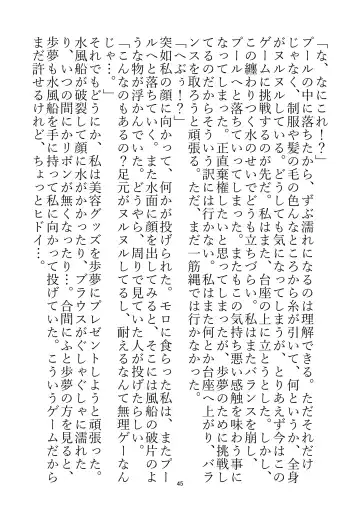 「な、なにこれ！？」
プールの中に落ちたから、ずぶ濡れになるのは理解できる。ただそれだけ
じゃなく、制服や髪の毛の色んなところから糸が引いて、何というか、全身
がヌルヌルしている。どうしても気になってしまうが、とりあえず今はこの
ゲームに挑戦するのが先だ。私はまた、台座の上に立とうとした。しかし、
この纏わりつく水のせいでどうも立ちづらい。私はまたバランスを崩し、
プールへと落ちていってしまった。またもこの気持ち悪い感触を味わう事に
なってしまった。正直棄権したいと思ってしまったが、歩夢のために挑戦し
てるのだからそういう訳には行かない。私はまた何とか台座へ上がり、バラ
ンスを取ろうと頑張る。ただ、まだ一筋縄では行かなく、
「へぶぅ！？」
突如私の顔に向かって、何かが投げられた。モロに食らった私は、またプー
ルへと落ちていく。また水面に顔を出してみると、そこには風船の破片のよ
うな物が浮かんでいた。どうやら、周りで見ていた人が投げたらしい。
「こんなのもあるの？足元がヌルヌルしてるし、耐えるなんて無理ゲーなん
じゃ…。」
それでもどうにか、私は美容グッズを歩夢にプレゼントしようと頑張った。
水風船が破裂して顔に水がかかったり、ブラウスがぐしゃぐしゃに濡れた
り、いつの間にかリボンが無くなったり…。合間にふと歩夢の方を見ると、
歩夢も水風船を手に持って私に向かって投げていた。こういうゲームだから
まだ許せるけれど、ちょっとヒドイ…。
45